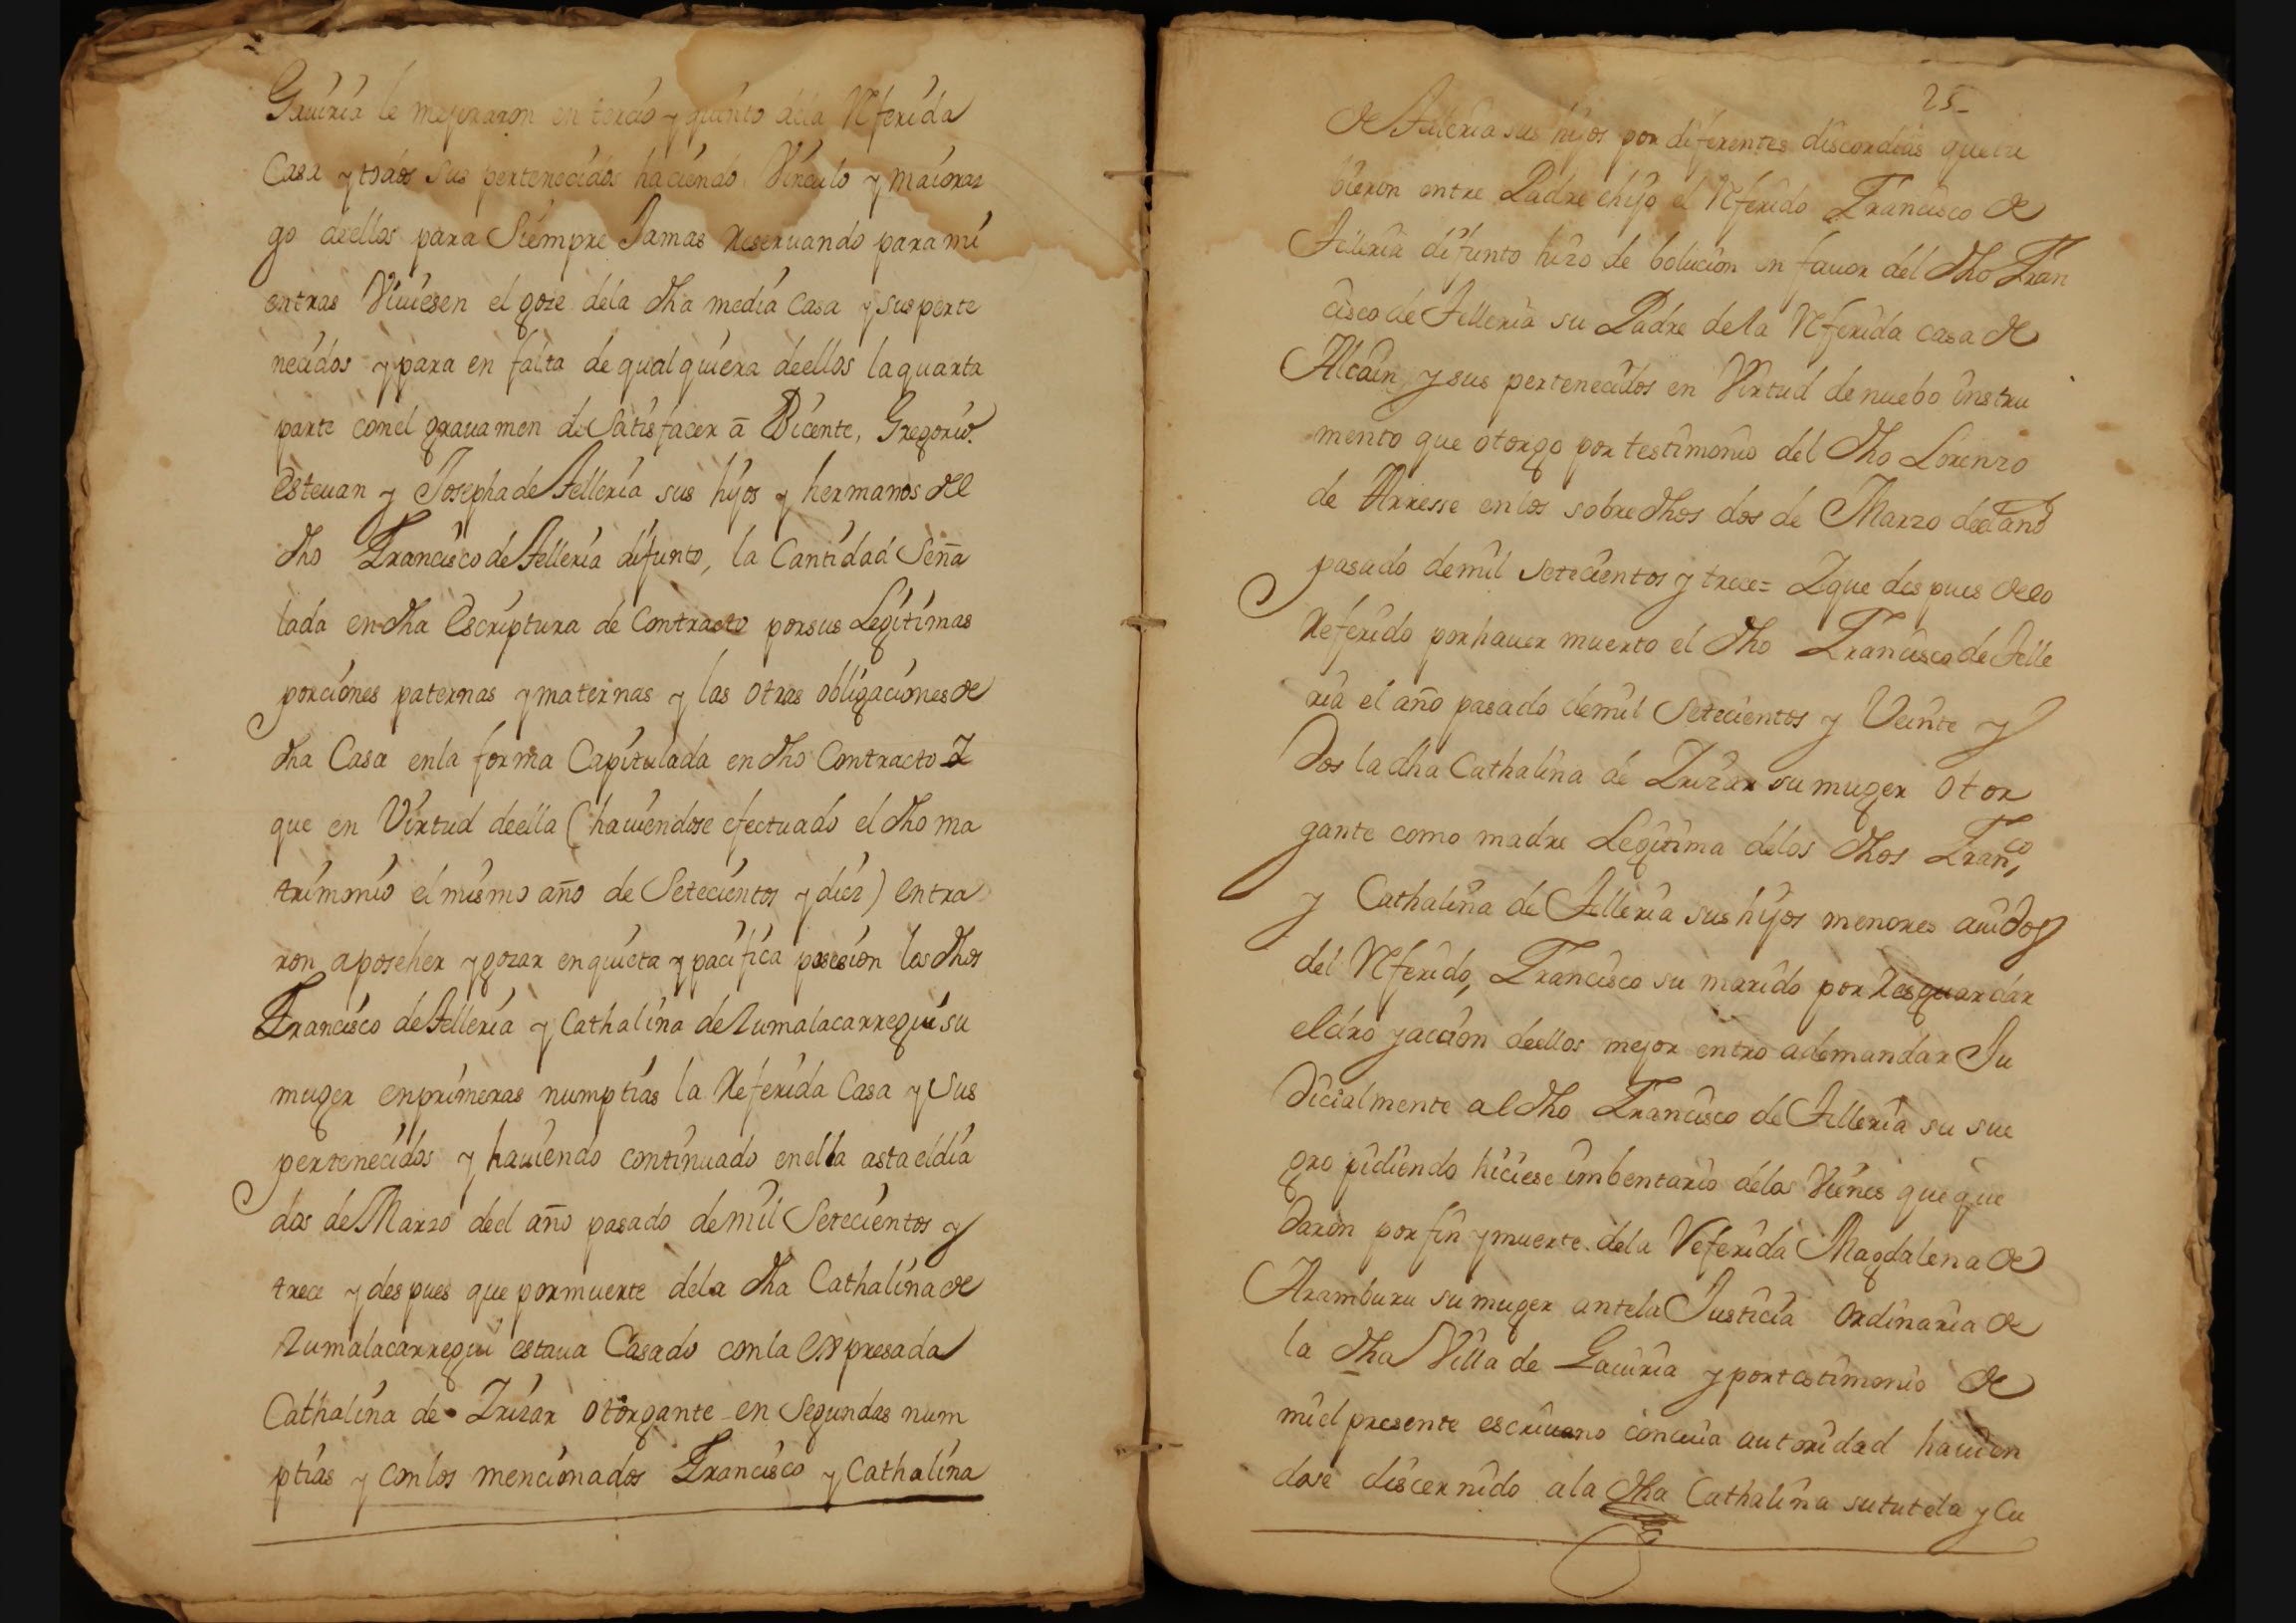 Gauiria le mejoraron en tercio y quinto della Referida
Casa y todos sus pertenecidos haciendo Vinculo y maioraz
go deellos para Siempre Jamas Reseruando para mi
entras Viuiesen el goze dela dha media Casa y sus perte
necidos y para en falta de qualquiera deellos la quarta
parte conel grauamen de Satisfacer a Vicente, Gregorio
Esteuan y Josepha de Telleria sus hijos y hermanos del
dho Francisco de Telleria difunto, la Cantidad Seña
lada en dha Escriptura de Contracto por sus Legitimas
porciones paternas y maternas y las otras obligaciones de
dha Casa enla forma Capitulada en dho Contracto Y
que en Virtud deella (hauiendose efectuado el dho ma
trimonio el mismo año de Setecientos y diez) entra
ron aposeher y gozar en quieta y pacifica posesion los dhos
Francisco de Telleria y Cathalina de Zumalacarregui su
muger en primeras numptias la Referida Casa y Sus
pertenecidos y hauiendo continuado en ella asta el dia
dos de Marzo deel año pasado de mil Setecientos y
trece y despues que por muerte dela dha Cathalina de
Zumalacarregui estaua Casado con la expresada
Cathalina de Yrizar otorgante en Segundas num
ptias y con los mencionados Francisco y Cathalina
25
de Telleria sus hijos por diferentes discordias que tu
bieron entre Padre ehijo el Referido Francisco de
Telleria difunto hizo de bolucion en fauor del dho Fran
cisco de Telleria su Padre de la Referida casa de
Alcain y sus pertenecidos en Virtud de nuebo instru
mento que otorgo por testimonio del dho Lorenzo
de Arresse en los sobredhos dos de Marzo deel año
pasado de mil setecientos y trece= Y que despues de lo
Referido por hauer muerto el dho Francisco de Telle
ria el año pasado de mil Setecientos y Veinte y
Dos la dha Cathalina de Yrizar su muger otor
gante como madre Legitima delos dhos Franco,
y Cathalina de Telleria sus hijos menores auidos
del Referido, Francisco su marido por Resguardar
el dro y accion deellos mejor entro ademandar Ju
dicialmente al dho Francisco de Telleria su sue
gro pidiendo hiciese imbentario delos Vienes que que
daron por fin y muerte dela Referida Magdalena de
Aramburu su muger ante la Justicia Ordinaria de
la dha Villa de Gauiria y por testimonio de
mi el presente escriuano con cuia autoridad hauien
dose discernido ala dha Cathalina su tutela y Cu